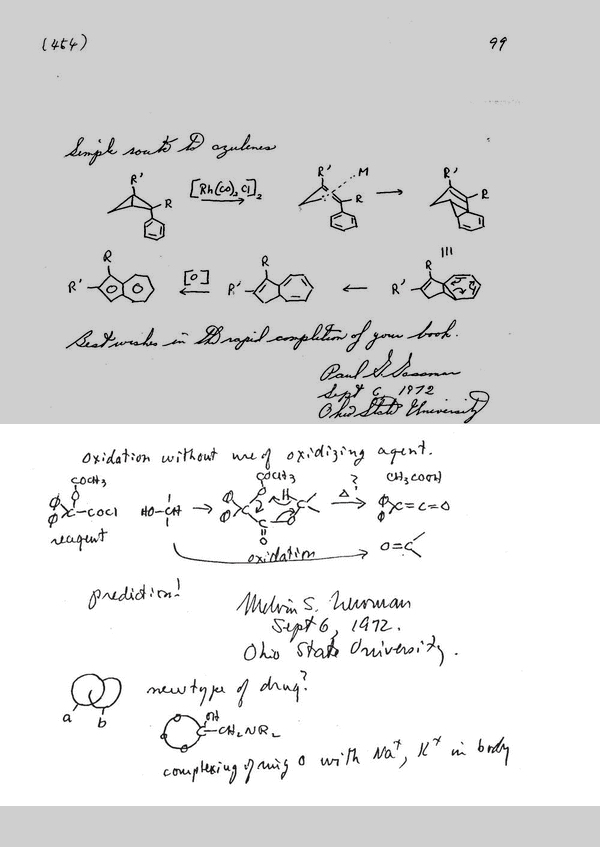 (454) 99
Simple route to azulenes
R' [Rh(CO)2Cl]2 R' M R'
R R R
R R R III
R' [O] R' R'
Best wishes in the rapid completion of your book.
Paul G. Gassman
Sept 6, 1972
Ohio State University
Oxidation without use of oxidizing agent.
COCH3 COCH3 ? CH3COOH
φ O φ O H Δ φ
φ C-COCl HO-CH → φ C C → φ C=C=O
reagent O
O
oxidation O=C
prediction!
Melvin S. Newman
Sept 6, 1972.
Ohio State University.
new type of drug?
a b
OH
O C-CH2NR2
O O
complexing of ring O with Na+, K+ in body